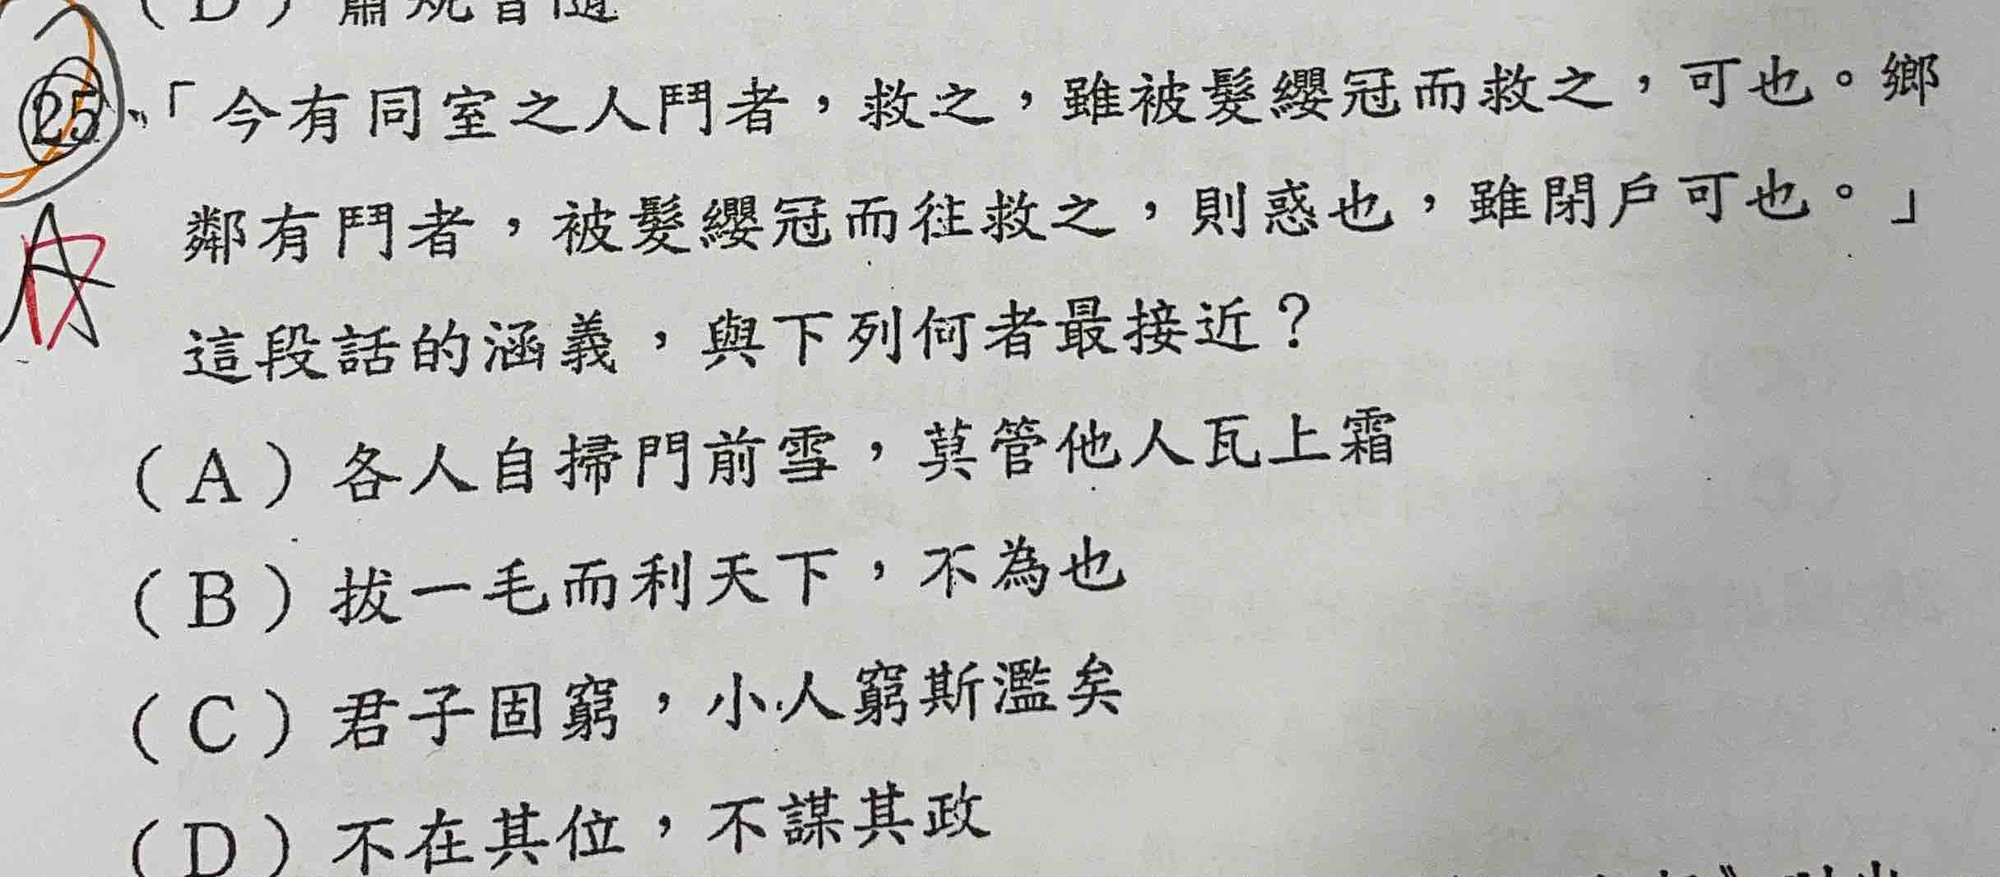 (D)蕭規曹隨
25、「今有同室之人鬥者，救之，雖被髮纓冠而救之，可也。鄉
鄰有鬥者，被髮纓冠而往救之，則惑也，雖閉戶可也。」
A
這段話的涵義，與下列何者最接近？
(A)各人自掃門前雪，莫管他人瓦上霜
(B)拔一毛而利天下，不為也
(C)君子固窮，小人窮斯濫矣
(D)不在其位，不謀其政